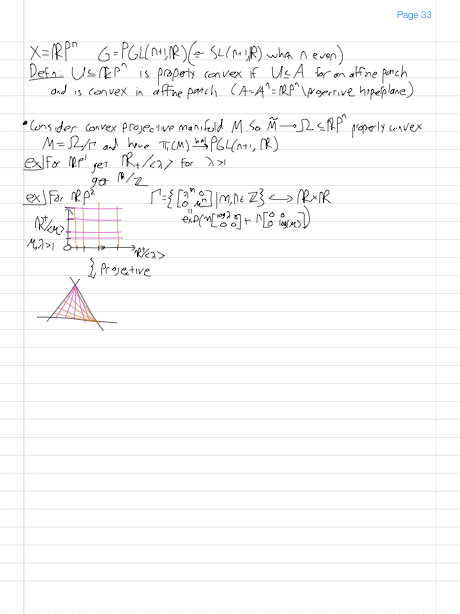 Page 33
X=ℝPⁿ G=PGL(n+1,ℝ)(= SL(n+1,ℝ) when n even)
Defn: U⊆ℝPⁿ is properly convex if U⊆A for an affine patch
and is convex in affine patch (A=𝔸ⁿ=ℝPⁿ\projective hyperplane)
• Consider convex projective manifold M. So M̃→Ω⊆ℝPⁿ properly convex
M=Ω/Γ and have π₁(M) hol→ PGL(n+1,ℝ)
ex) For ℝP¹ get ℝ₊/<λ> for λ>1
get ℝ/ℤ
ex) For ℝP² Γ={[λᵐ 0 0 μⁿ] | m,n∈ℤ} ↔ ℝ×ℝ
exp(m[log λ 0 0 0] + n[0 0 0 log(μ)])
ℝ⁺/<μ>
μ,λ>1
ℝ⁺/<λ>
Projective